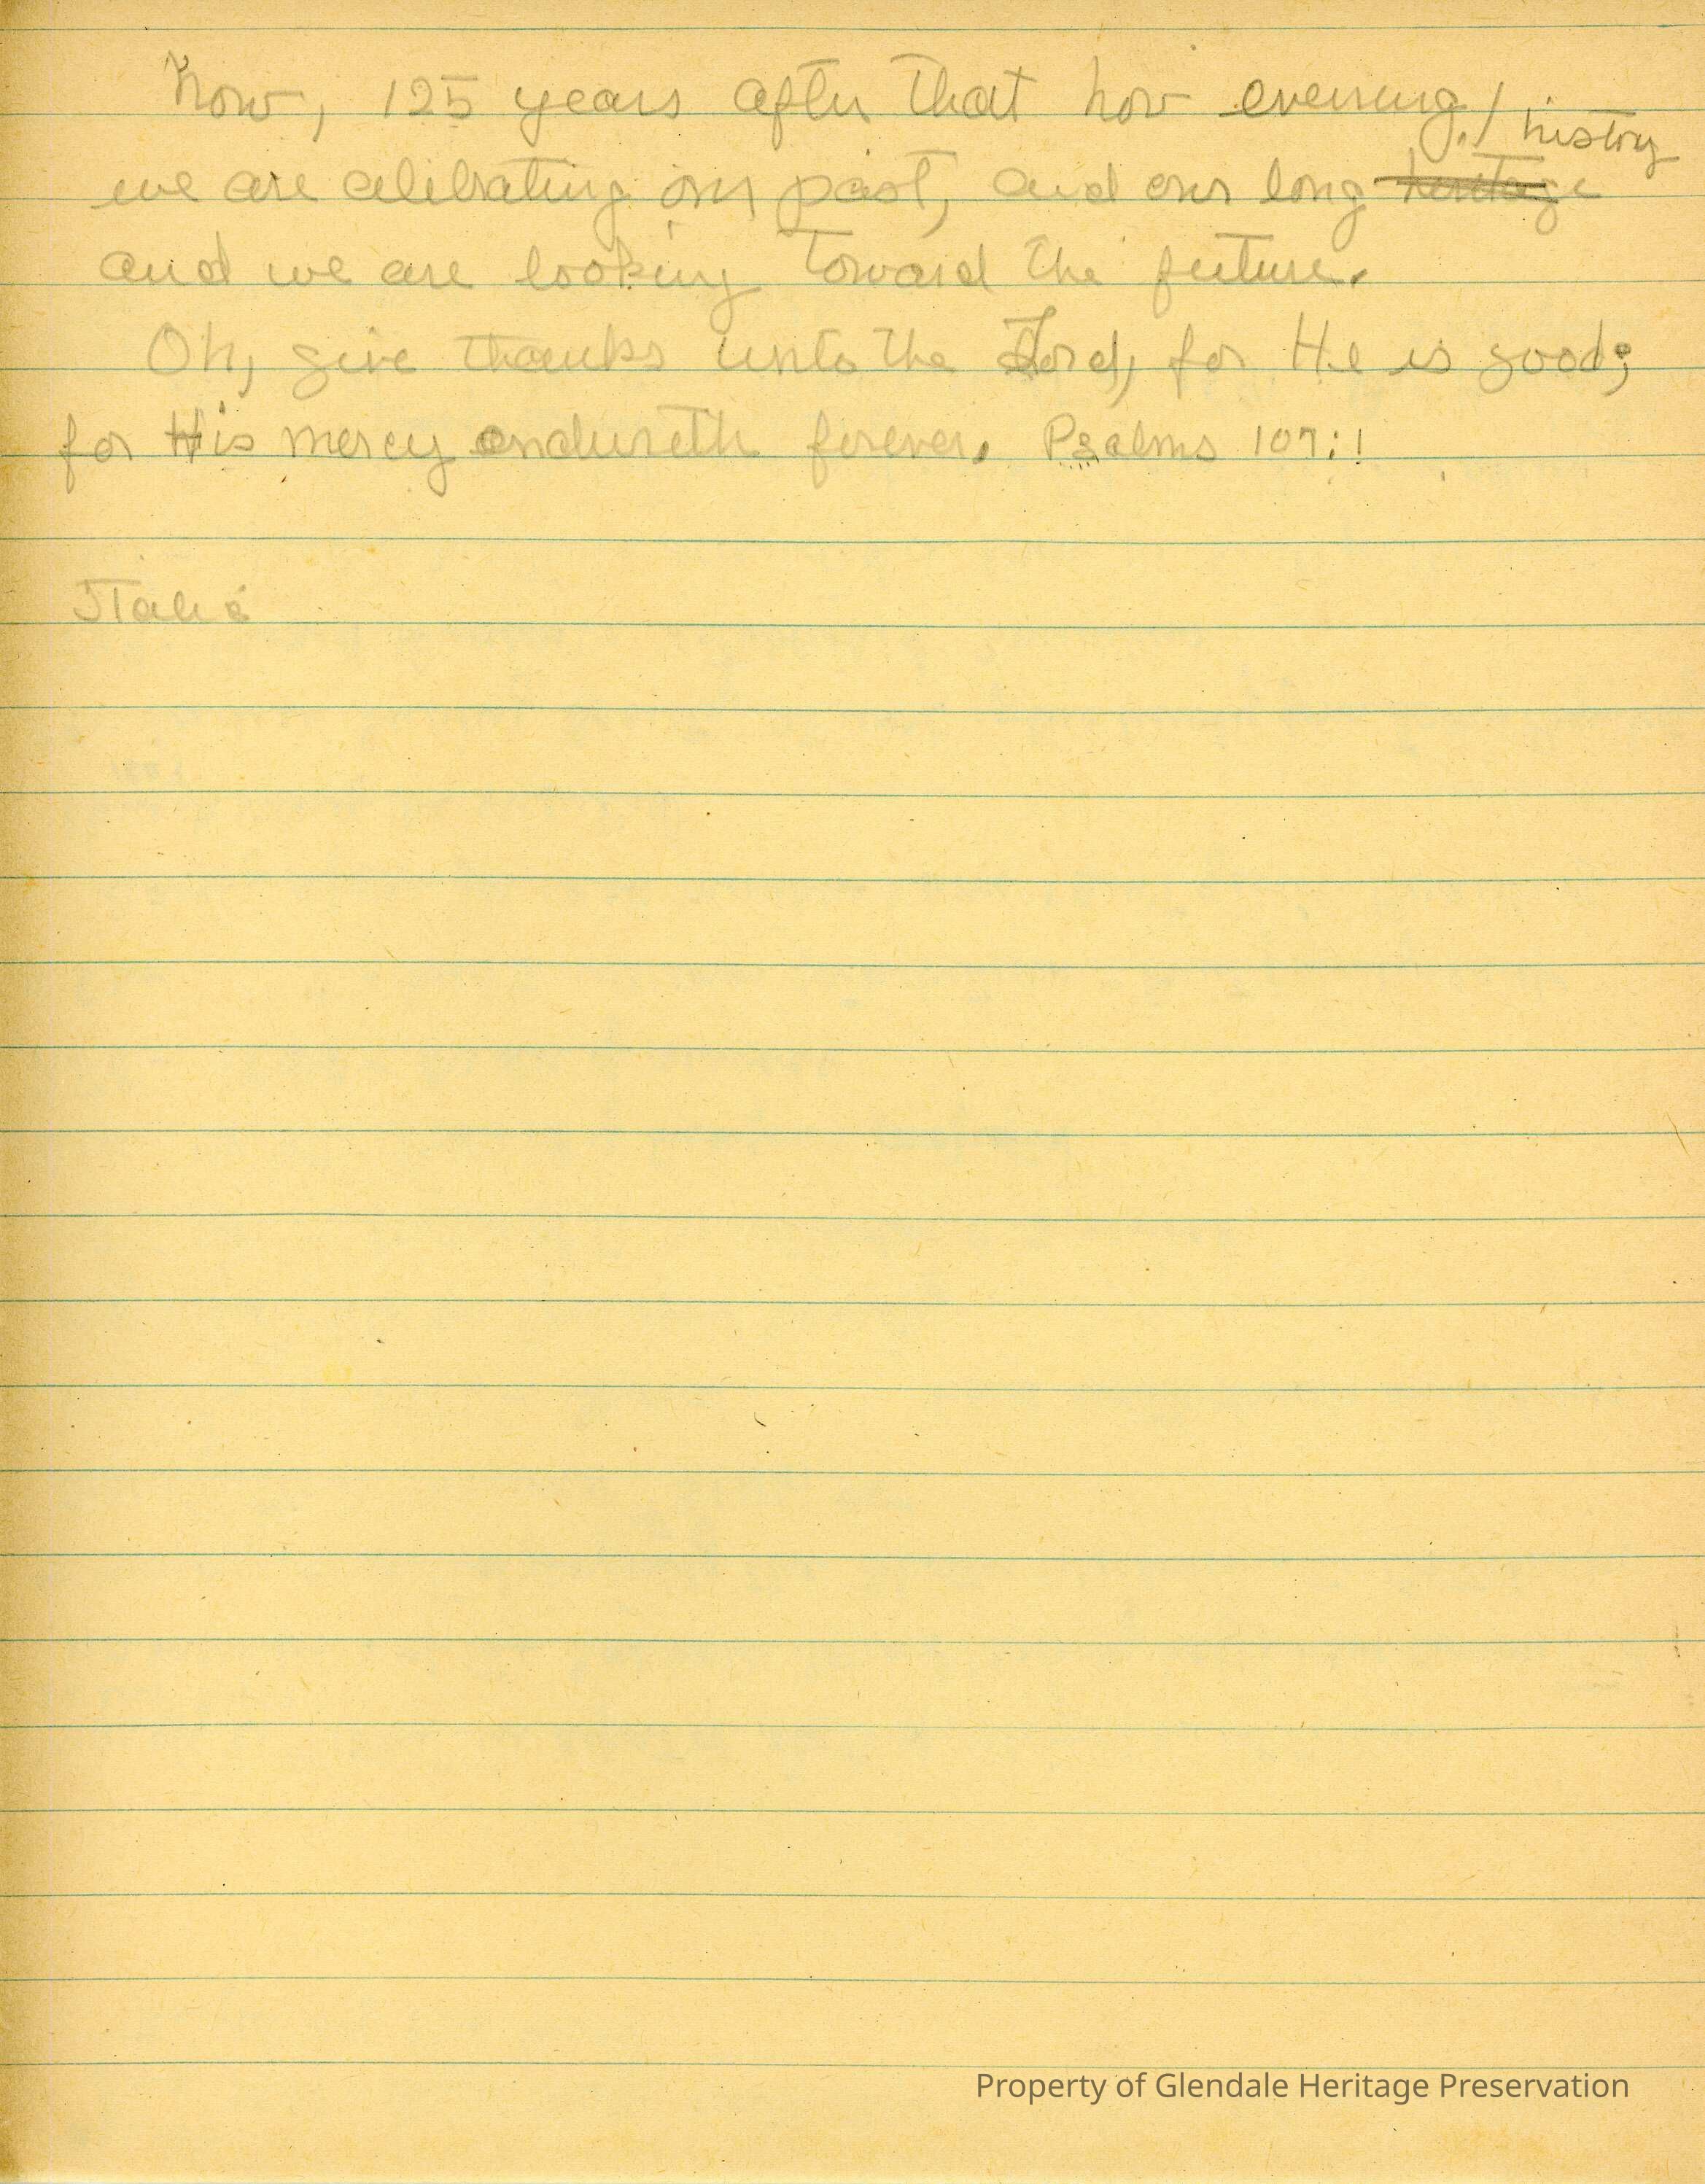 Now, 125 years after that Nov evening,/ history
we are celebrating our past, and our long heritage
and we are looking toward the future.
Oh, give thanks unto the Lord, for He is good;
for His mercy endureth forever. Psalms 107:1
Property of Glendale Heritage Preservation